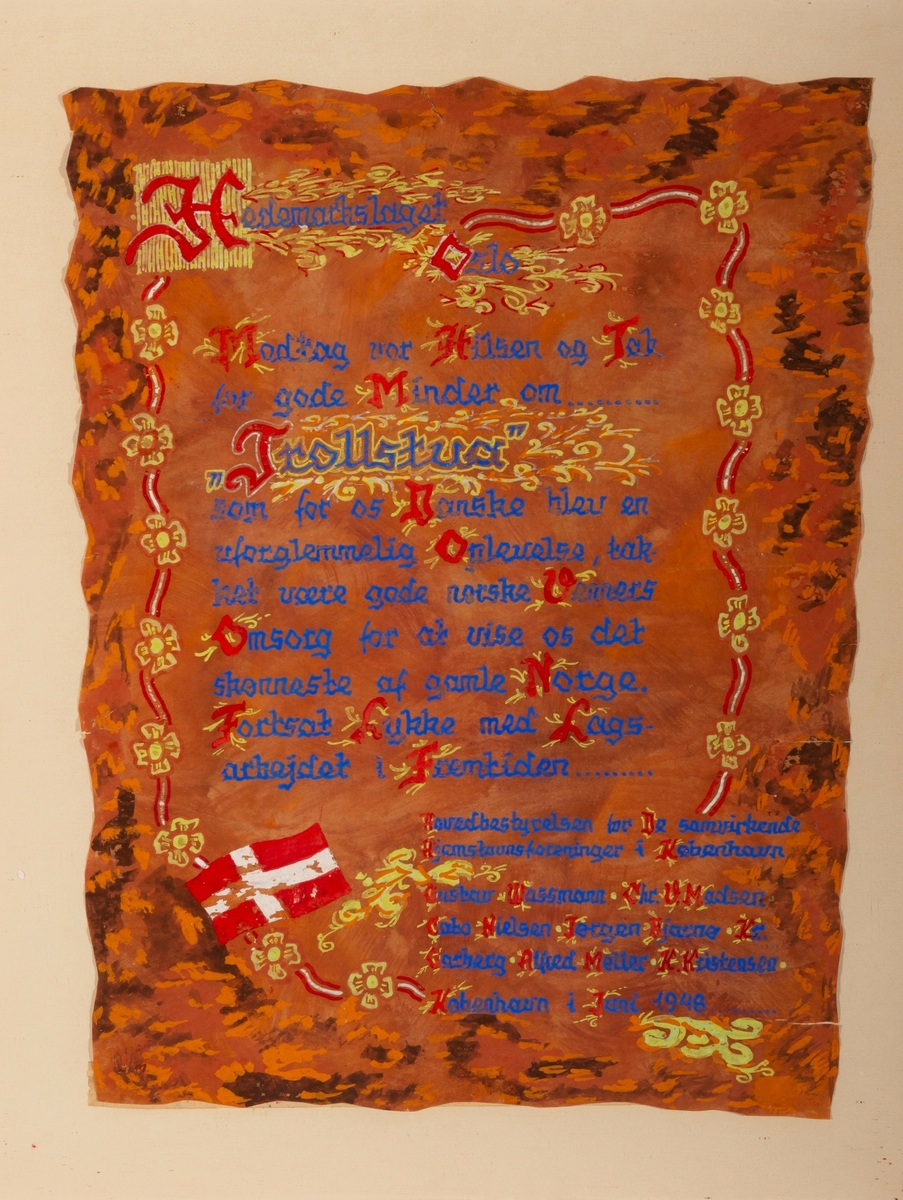 Hedemarkslaget
Oslo
Modtag vor Hilsen og Tak
for gode Minder om..........
„Trollstua”
som for os Danske blev en
uforglemmelig Oplevelse, tak-
ket være gode norske Venners
Omsorg for at vise os det
skønneste af gamle Norge.
Fortsat Lykke med Lags-
arbejdet i Fremtiden.........
Hovedbestyrelsen for De samvirkende
Hjemstavnsforeninger i København
Gustav Wassmann · Chr. V. Madsen·
Nielsen · Jørgen Bjarnø · Kr.
Alfred Møller · K. Kristensen·
København i Juni 1948